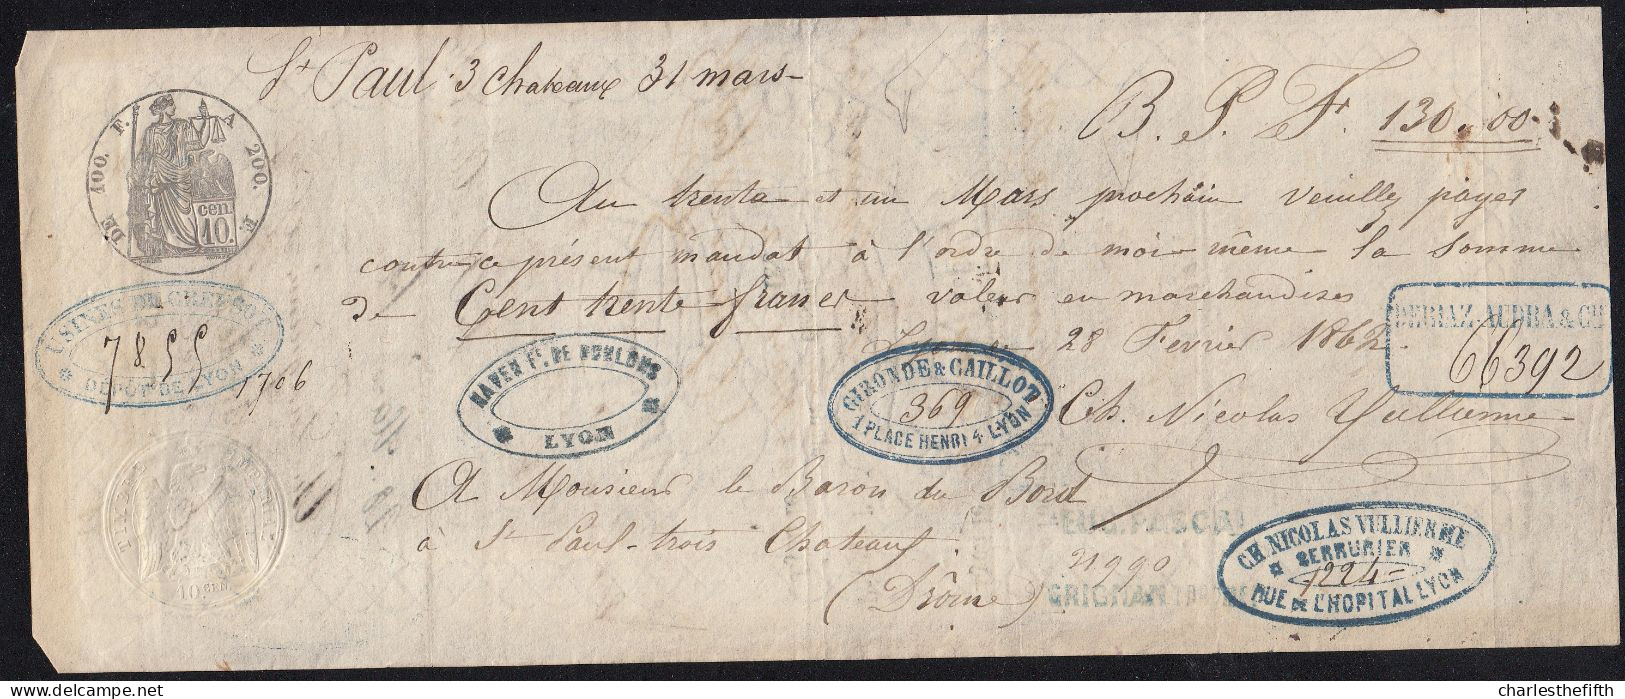 St Paul 3 Chateaux 31 mars
B. P. Fr. 130.00
DE 100. F. A 200. F.
cen. 10.
Au trente et un Mars prochain veuillez payer
contre ce présent mandat à l'ordre de moi-même la somme
de Cent trente francs valeur en marchandises
Lyon 28 Fevrier 1862
USINES DU CREUSOT
7855
DÉPOT DE LYON
1706
LYON
GIRONDE & CAILLOT
369
1 PLACE HENRI 4 LYON
AUDRA & CIE
66392
Ch. Nicolas Vullienme
A Monsieur le Baron du Bord
à St Paul-trois Chateaux
(Drôme)
TIMBRE
10 CEN.
PASCAL
21990
GRIGNAN
CH NICOLAS VULLIENME
SERRURIER
1224
RUE DE L'HOPITAL LYON
charlesthefifth